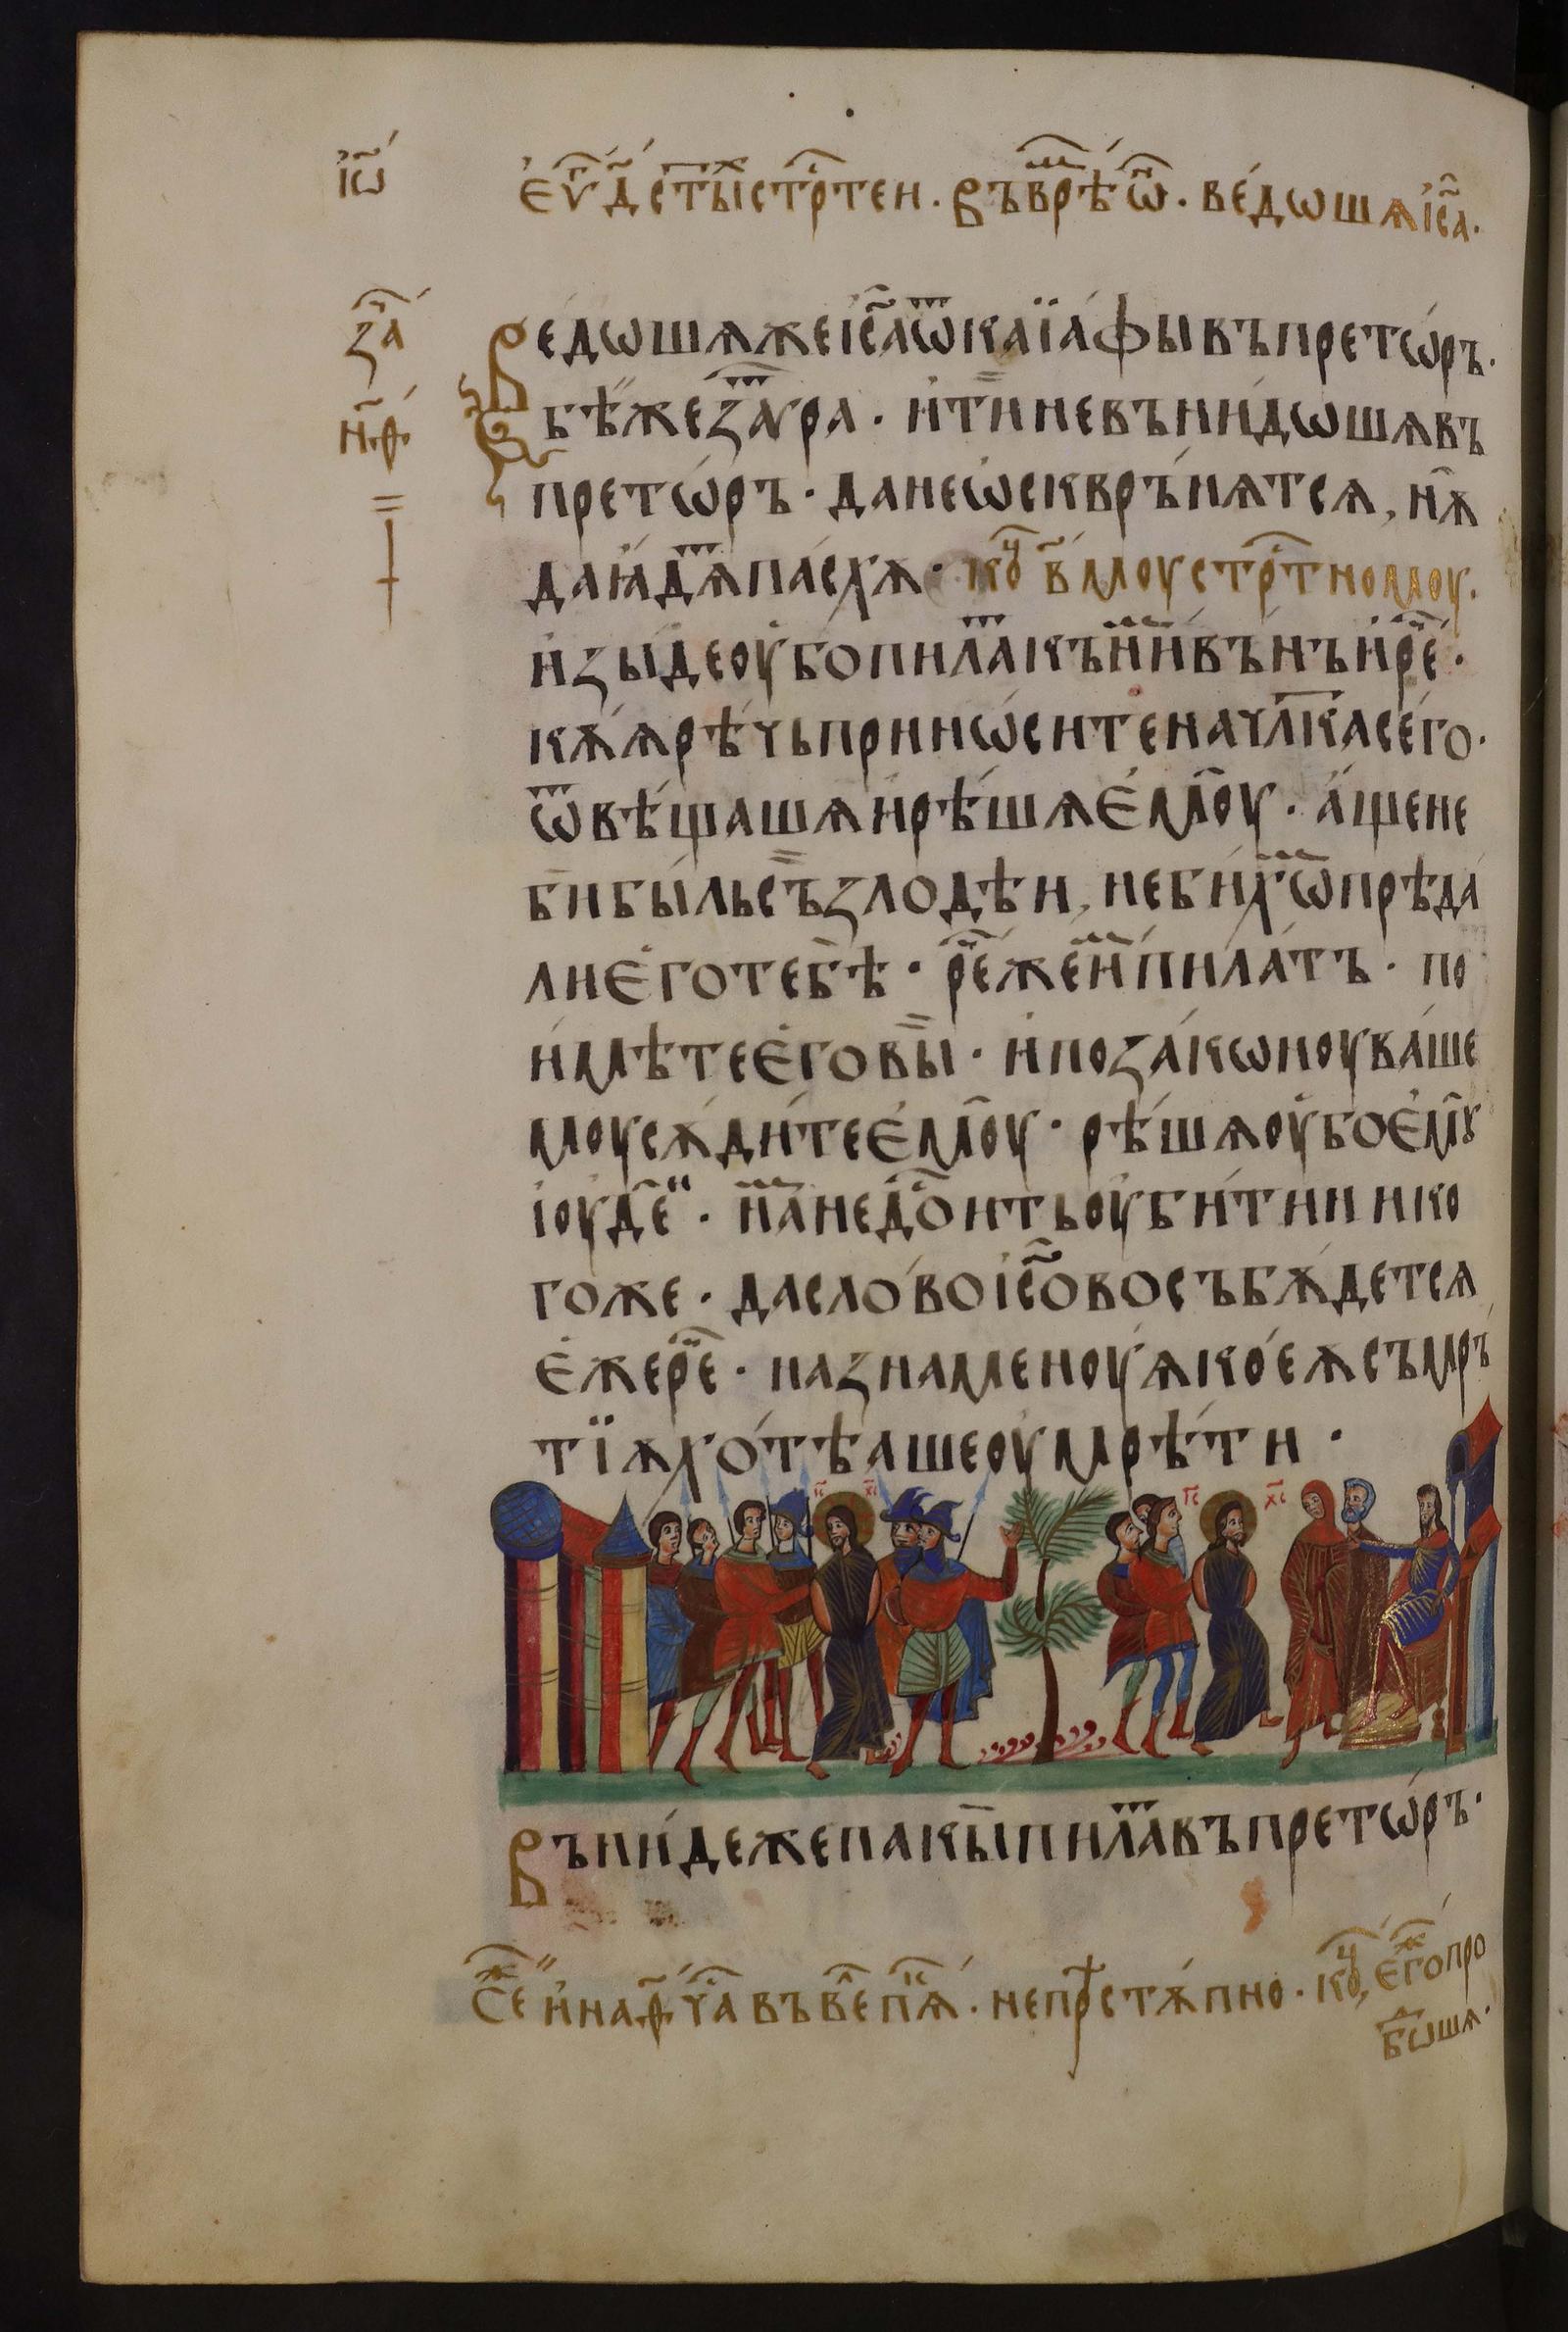 і҆ѡ҃
е҆ѵ҃г д҃ стⷪ҇ы стрⷭ҇тен . въ врѣⷨ҇ ѡ҆́н . ве́дошѧ і҆с҃а .
за҃
н҃ѳ
Ве́дошѧже і҆с҃а ѿ каїа́фы въ претѡ́ръ .
бѣ́же заѵⷮра . и҆ ті́и не вънидошѧ въ
претѡ́ръ . да не ѡ҆скврънѧтсѧ , нѫ̑
да ꙗ҆дѧⷮ па́схѫ . коⷰ҇ в҃ моу стрⷭ҇тномоу .
и҆зы́де оу҆бо пилаⷮ къ ниⷨ вънъ и҆ реⷱ҇ .
кѫ́ѧ рѣ́чь принѡ́сите на чл҃ка сего .
ѿвѣ́щашѧ и҆ рѣ́шѧ є҆моу̑ . а҆́ще не
би бы́ль съ злодѣи , не бихѡⷨ прѣда́
ли є҆го тебѣ̀ . реⷱ҇же и҆ⷨ пила́тъ . по
и҆мѣ́те є҆го вы̀ . и҆ по зако́ноу ва́ше
моу сѫди́те є҆моу̑ . рѣ́шѧ оу҆бо є҆мꙋ̑
і҆оуде́и . наⷨ не дⷭ҇оить оу҆би́ти нико
гоже . да сло́во і҆с҃ово събѫ́детсѧ
є҆́же реⷱ҇ . назнаменоуѧ кое́ѫ съмръ́
тїѫ хо́тѣаше оу҆мрѣ́ти .
іс҃ хс҃
іс҃ хс҃
Въни́де же пакы̀ пилаⷮ въ претѡ́ръ .
сеⷤ и҆ на ѳ҃ чаⷭ҇ въ веⷧ҇ пѧⷦ҇ . непрⷭ҇тѫпно . коⷰ҇ , є҆гоⷤ про
бѡⷣшѧ .